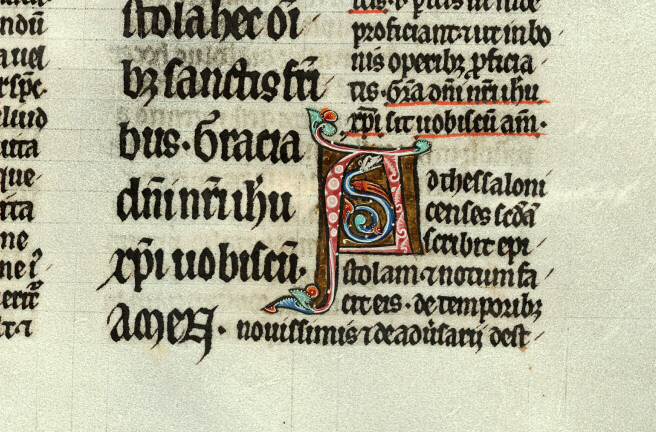 ndū
a uel
rspc̄.
eluid
uita
que
ita
ne
ne ī
erit̄
stola hec oī
bꝫ sanctis fr̄i
bus. Gracia
dn̄i nr̄i ih̄u
xp̄i uobiscū.
AMEN.
proficiant. ⁊ ut in bo
nis operibꝫ ꝓficia
tis. Gr̄a dn̄i nr̄i ih̄u
xp̄i sit uobiscū am̄.
Ad thessaloni
censes sc̄dā
scribit epi
stolam. ⁊ notum fa
cit eis. de temporibꝫ
nouissimis ⁊ de adūsarij dest